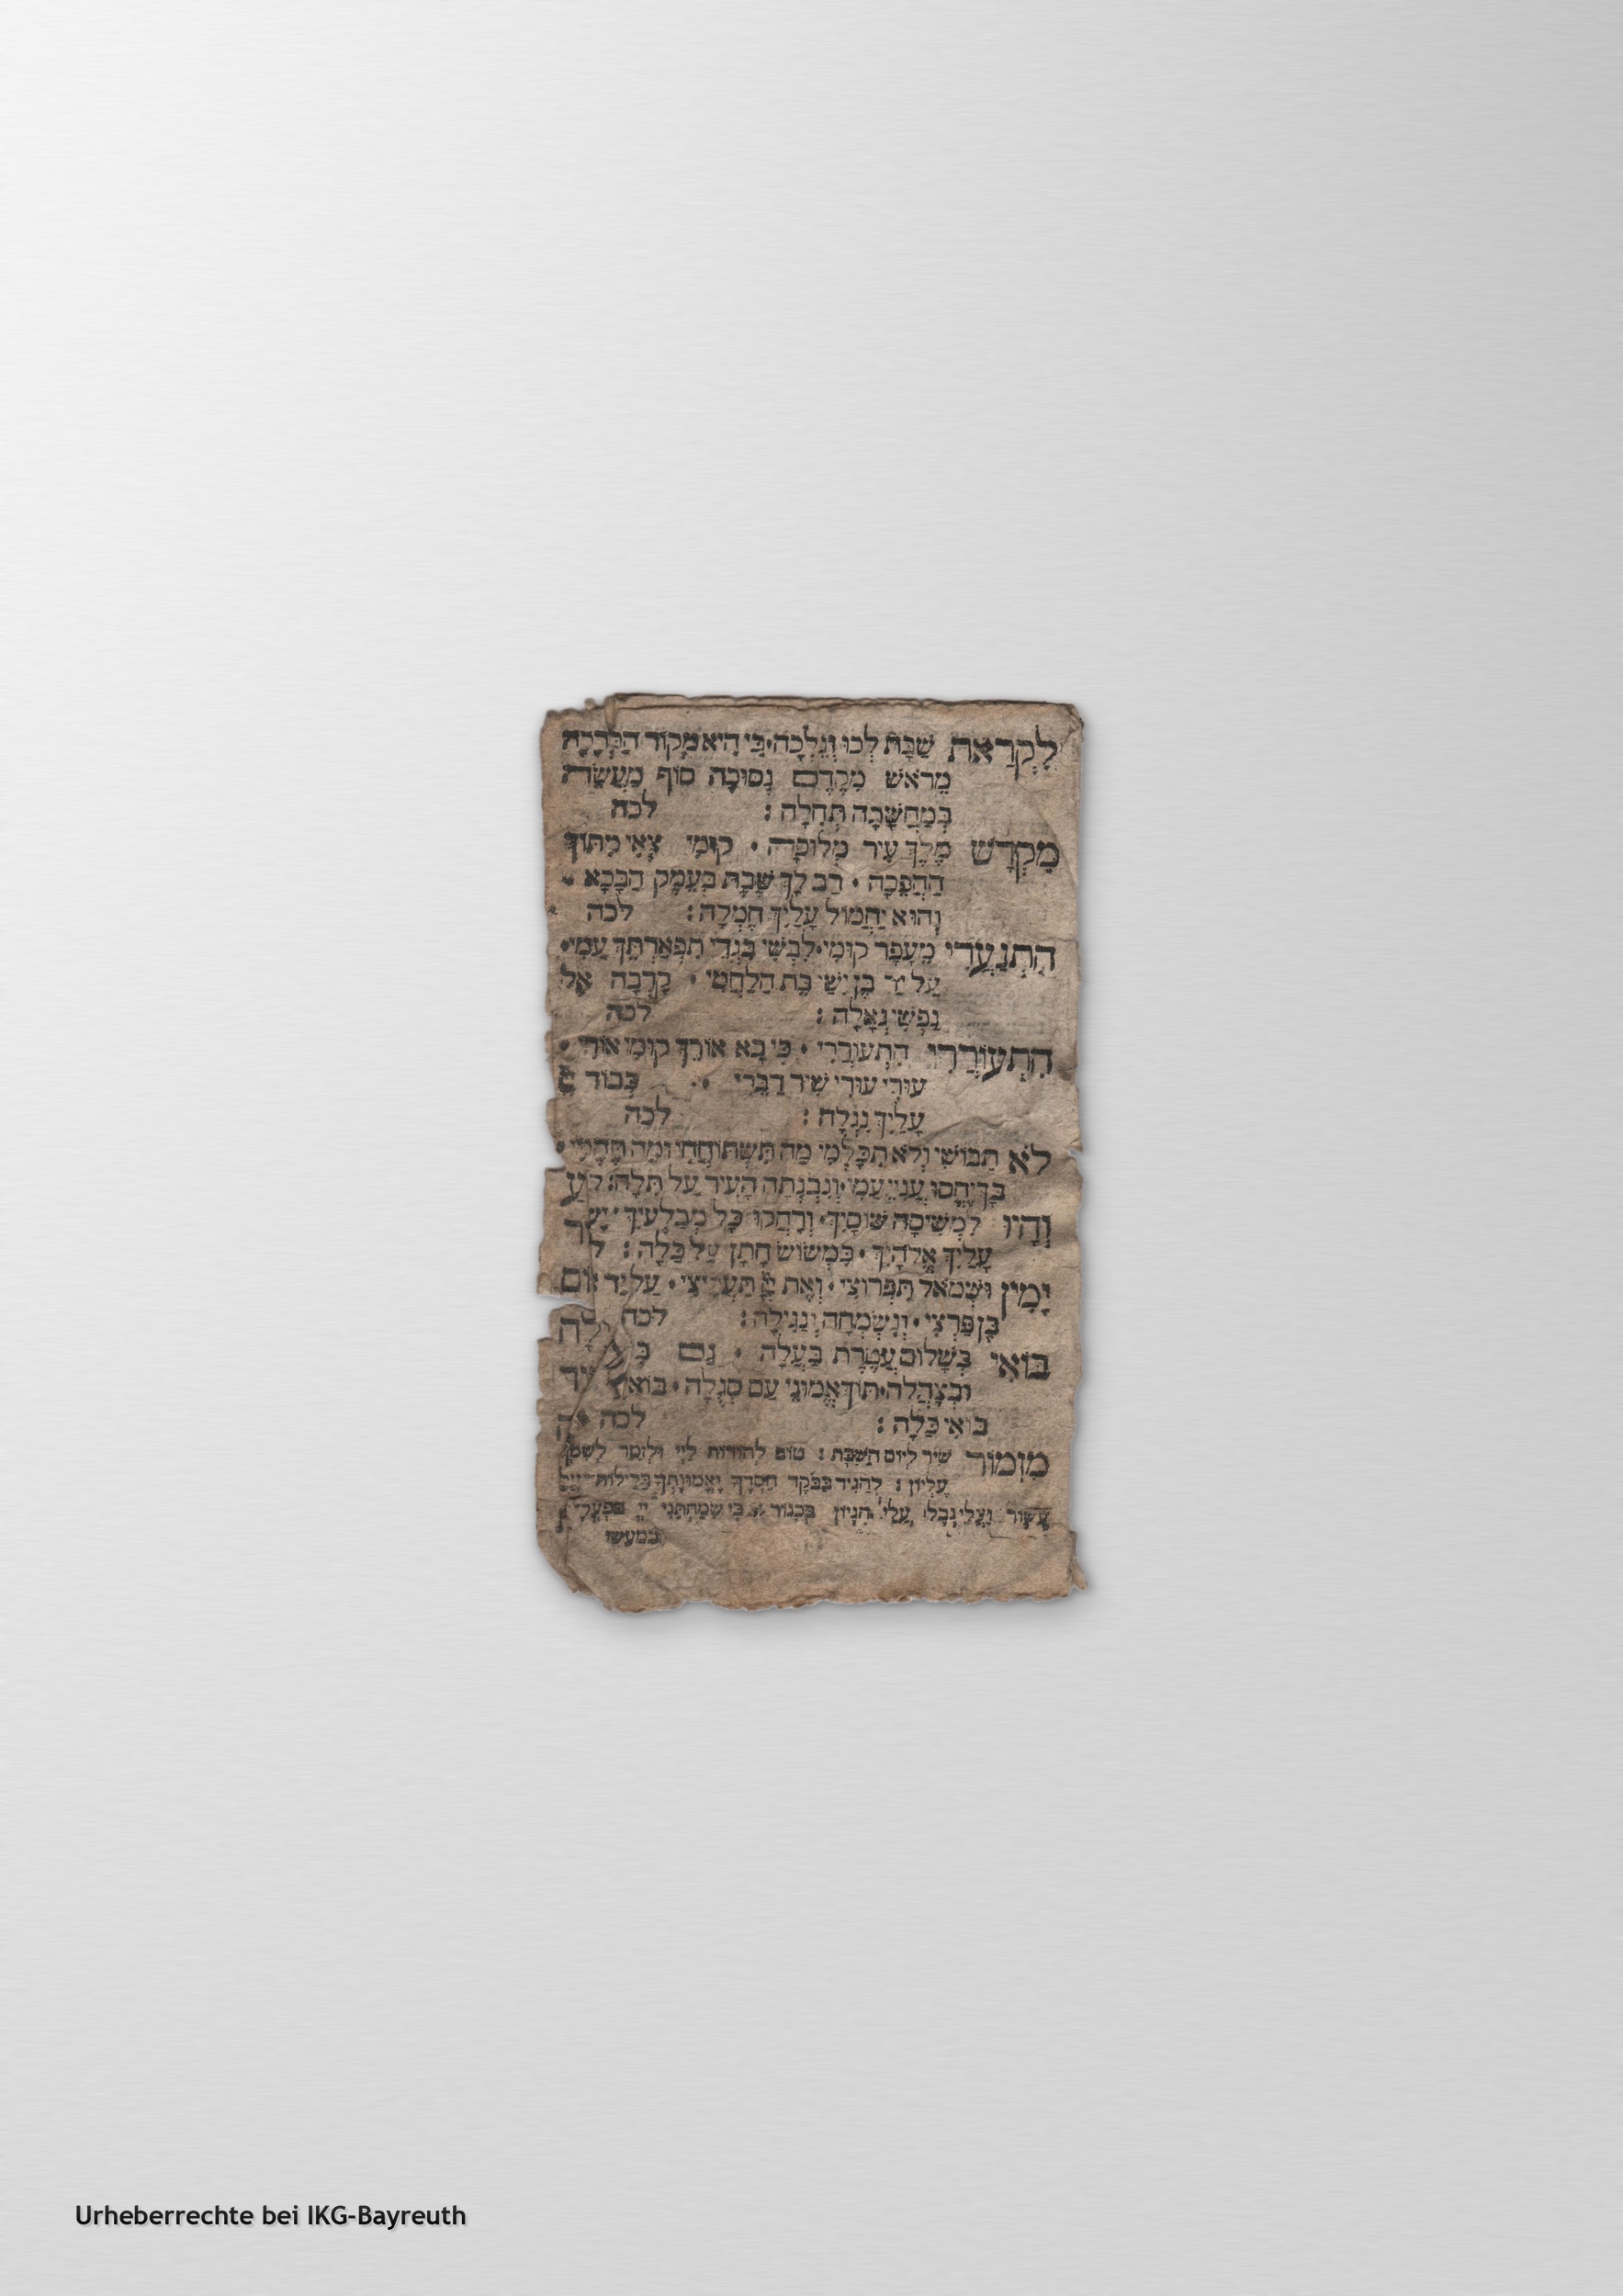 לִקְרַאת שַׁבָּת לְכוּ וְנֵלְכָה · כִּי הִיא מְקוֹר הַבְּרָכָה
מֵרֹאשׁ מִקֶּדֶם נְסוּכָה סוֹף מַעֲשֶׂה
בְּמַחֲשָׁבָה תְּחִלָּה : לכה
מִקְדַּשׁ מֶלֶךְ עִיר מְלוּכָה · קוּמִי צְאִי מִתּוֹךְ
הַהֲפֵכָה · רַב לָךְ שֶׁבֶת בְּעֵמֶק הַבָּכָא ·
וְהוּא יַחֲמוֹל עָלַיִךְ חֶמְלָה : לכה
הִתְנַעֲרִי מֵעָפָר קוּמִי · לִבְשִׁי בִּגְדֵי תִפְאַרְתֵּךְ עַמִּי ·
עַל יַד בֶּן יִשַׁי בֵּת הַלַּחְמִי · קָרְבָה אֶל
נַפְשִׁי גְאָלָהּ : לכה
הִתְעוֹרְרִי הִתְעוֹרְרִי · כִּי בָא אוֹרֵךְ קוּמִי אוֹרִי ·
עוּרִי עוּרִי שִׁיר דַּבֵּרִי · כְּבוֹד
עָלַיִךְ נִגְלָה : לכה
לֹא תֵבוֹשִׁי וְלֹא תִכָּלְמִי מַה תִּשְׁתּוֹחֲחִי וּמַה תֶּהֱמִי ·
בָּךְ יֶחֱסוּ עֲנִיֵּי עַמִּי · וְנִבְנְתָה הָעִיר עַל תִּלָּהּ :
וְהָיוּ לִמְשִׁיסָּה שׁוֹסָיִךְ · וְרָחֲקוּ כָּל מְבַלְּעָיִךְ
עָלַיִךְ אֱלֹהָיִךְ · כִּמְשׂוֹשׂ חָתָן עַל כַּלָּה :
יָמִין וּשְׂמֹאל תִּפְרוֹצִי · וְאֶת תַּעֲרִיצִי · עַל יַד
בֶּן פַּרְצִי · וְנִשְׂמְחָה וְנָגִילָה : לכה
בּוֹאִי בְשָׁלוֹם עֲטֶרֶת בַּעְלָהּ · גַּם
וּבְצָהֳלָה · תּוֹךְ אֱמוּנֵי עַם סְגֻלָּה · בּוֹאִי
בּוֹאִי כַלָּה : לכה
מִזְמוֹר שִׁיר לְיוֹם הַשַּׁבָּת : טוֹב לְהוֹדוֹת לַיְיָ וּלְזַמֵּר לְשִׁמְךָ
עֶלְיוֹן : לְהַגִּיד בַּבֹּקֶר חַסְדֶּךָ וֶאֱמוּנָתְךָ בַּלֵּילוֹת : עֲלֵי
עָשׂוֹר וַעֲלֵי נָבֶל עֲלֵי הִגָּיוֹן בְּכִנּוֹר : כִּי שִׂמַּחְתַּנִי יְיָ בְּפָעֳלֶךָ
במעשי
Urheberrechte bei IKG-Bayreuth